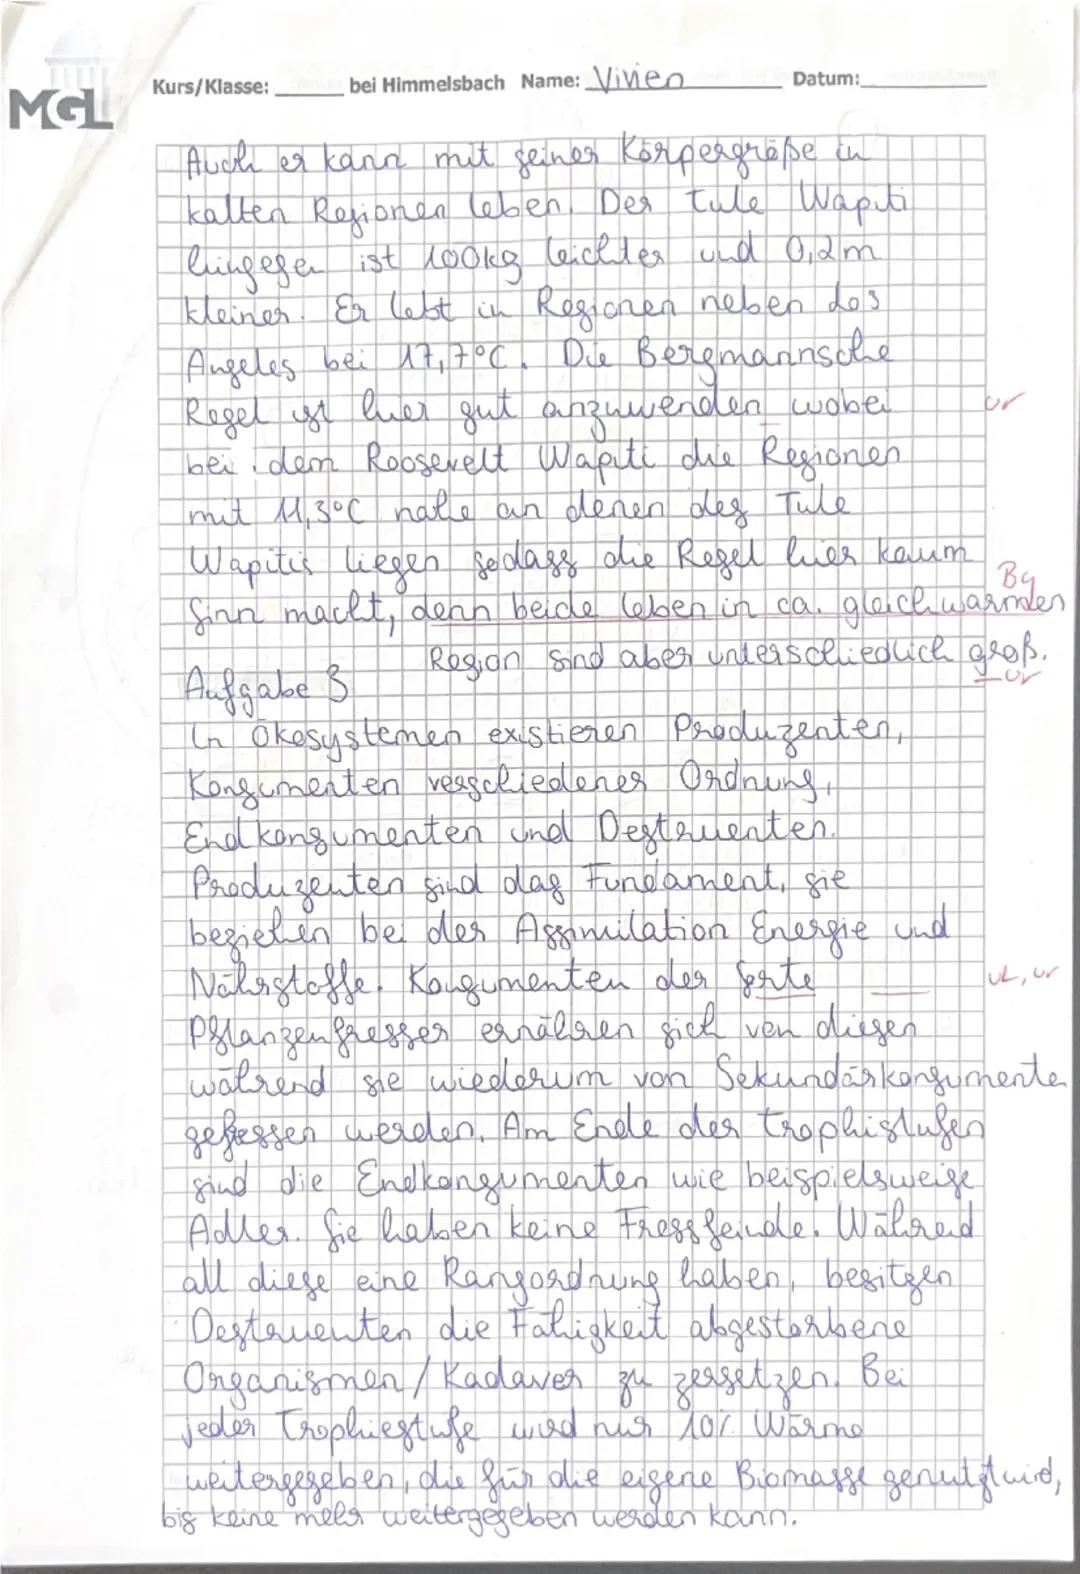 MGL
Kurs/Klasse: ______ bei Himmelsbach Name: Vivien Datum: ______
Auch er kann mit seiner Körpergröße in
kalten Regionen leben. Der Tule Wapiti
hingegen ist 100kg leichter und 0,2m
kleiner. Er lebt in Regionen neben Los
Angeles bei 17,7°C. Die Bergmannsche
Regel ist hier gut anzuwenden wobei
bei dem Roosevelt Wapiti die Regionen
mit 11,3°C nahe an denen des Tule
Wapitis liegen sodass die Regel hier kaum
Sinn macht, denn beide leben in ca. gleich warmen
Region sind aber unterschiedlich groß.
Aufgabe 3
In Ökosystemen existieren Produzenten,
Konsumenten verschiedener Ordnung,
Endkonsumenten und Destruenten.
Produzenten sind das Fundament, sie
beziehen bei der Assimilation Energie und
Nährstoffe. Konsumenten der
Pflanzenfresser ernähren sich von diesen
während sie wiederum von Sekundärkonsumente
gefressen werden. Am Ende der trophistufen
sind die Endkonsumenten wie beispielsweise
Adler. Sie haben keine Fressfeinde. Währed
all diese eine Rangordnung haben, besitzen
Destruenten die Fähigkeit abgestorbene
Organismen/Kadaver zu zersetzen. Bei
jeder Trophiestufe wird nur 10% Wärme
weitergegeben, die für die eigene Biomasse genutzt wird,
bis keine mehr weitergegeben werden kann.